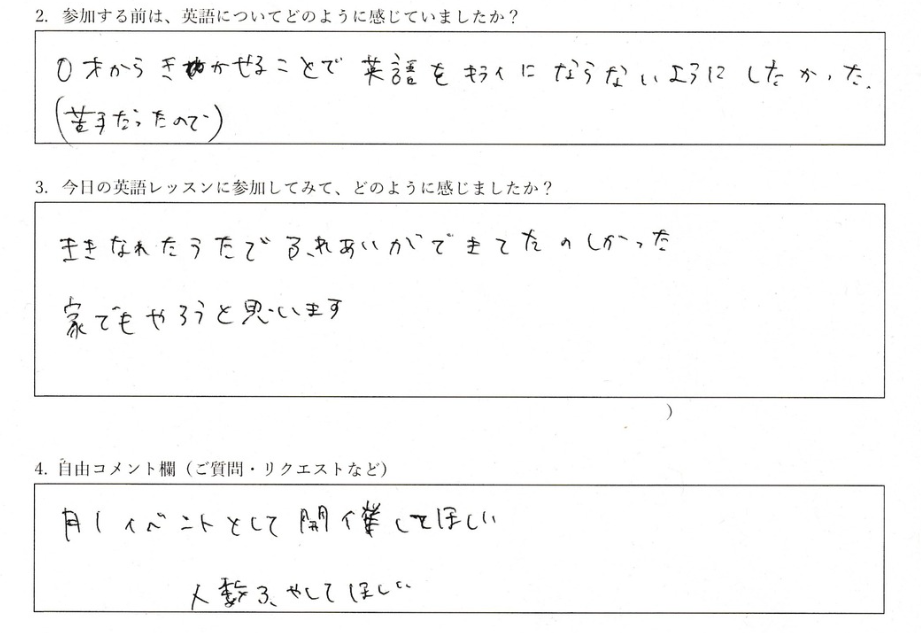 2. 参加する前は、英語についてどのように感じていましたか？
0才からきかせることで 英語をキライにならないようにしたかった.
(苦手だったので)
3. 今日の英語レッスンに参加してみて、どのように感じましたか？
ききなれたうたでふれあいができてたのしかった
家でもやろうと思います
)
4. 自由コメント欄（ご質問・リクエストなど）
月1イベントとして開催してほしい
人数ふやしてほしい